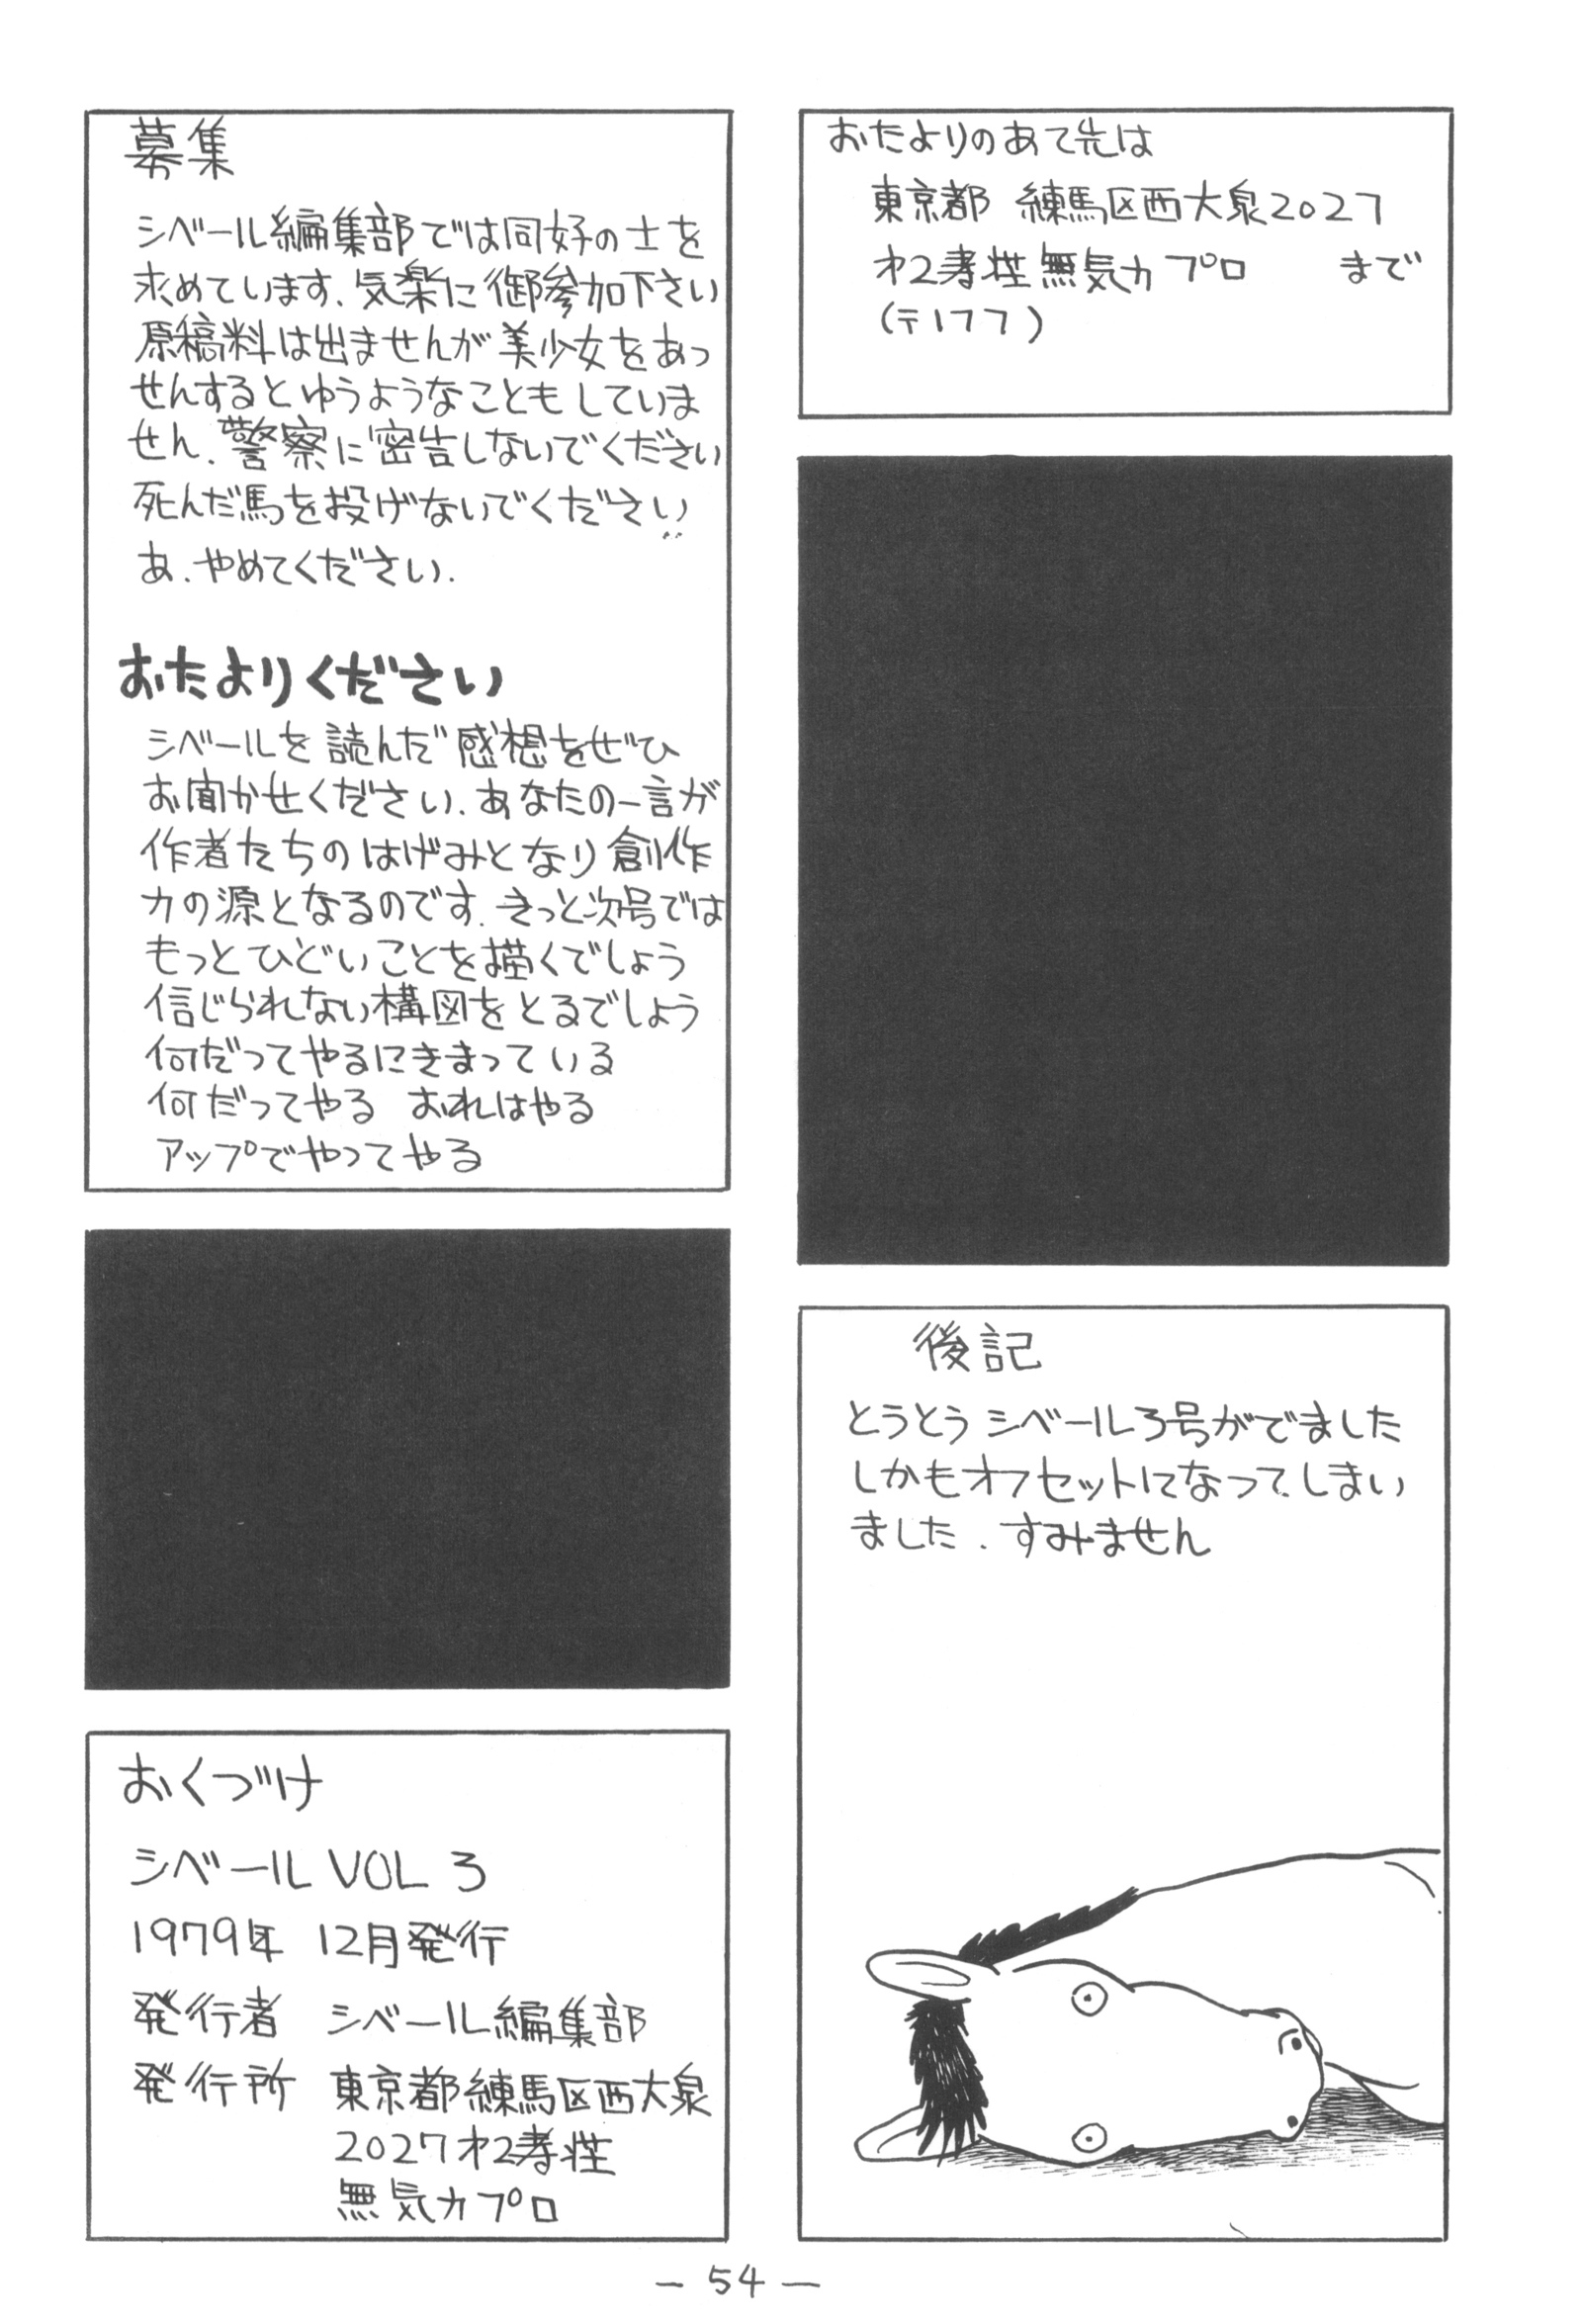 募集
シベール編集部では同好の士を
求めています.気楽に御参加下さい
原稿料は出ませんが美少女をあっ
せんするとゆうようなこともしていま
せん.警察に密告しないでください
死んだ馬を投げないでください
あ.やめてください.
おたよりください
シベールを読んだ感想をぜひ
お聞かせください.あなたの一言が
作者たちのはげみとなり創作
力の源となるのです.きっと次号では
もっとひどいことを描くでしょう
信じられない構図をとるでしょう
何だってやるにきまっている
何だってやる おれはやる
アップでやってやる
おくづけ
シベール VOL 3
1979年 12月発行
発行者 シベール編集部
発行所 東京都練馬区西大泉
2027 才2孝荘
無気力プロ
おたよりのあて先は
東京都 練馬区西大泉2027
才2孝荘無気力プロ まで
(〒177)
後記
とうとうシベール3号がでました
しかもオフセットになってしまい
ました.すみません
— 54 —